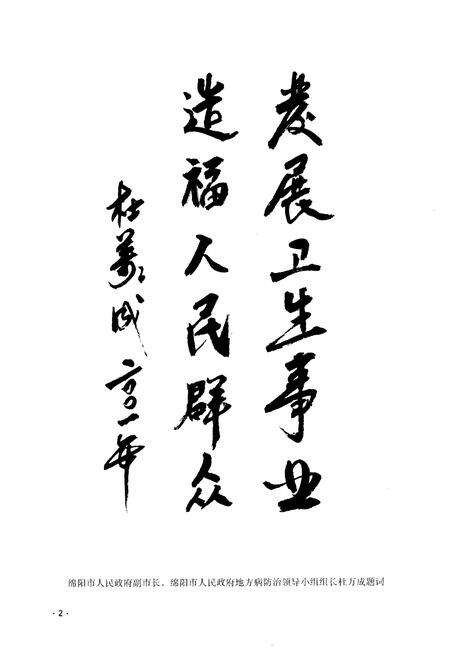 发展卫生事业
造福人民群众
杜万成 二〇〇一年
绵阳市人民政府副市长、绵阳市人民政府地方病防治领导小组组长杜万成题词
· 2 ·